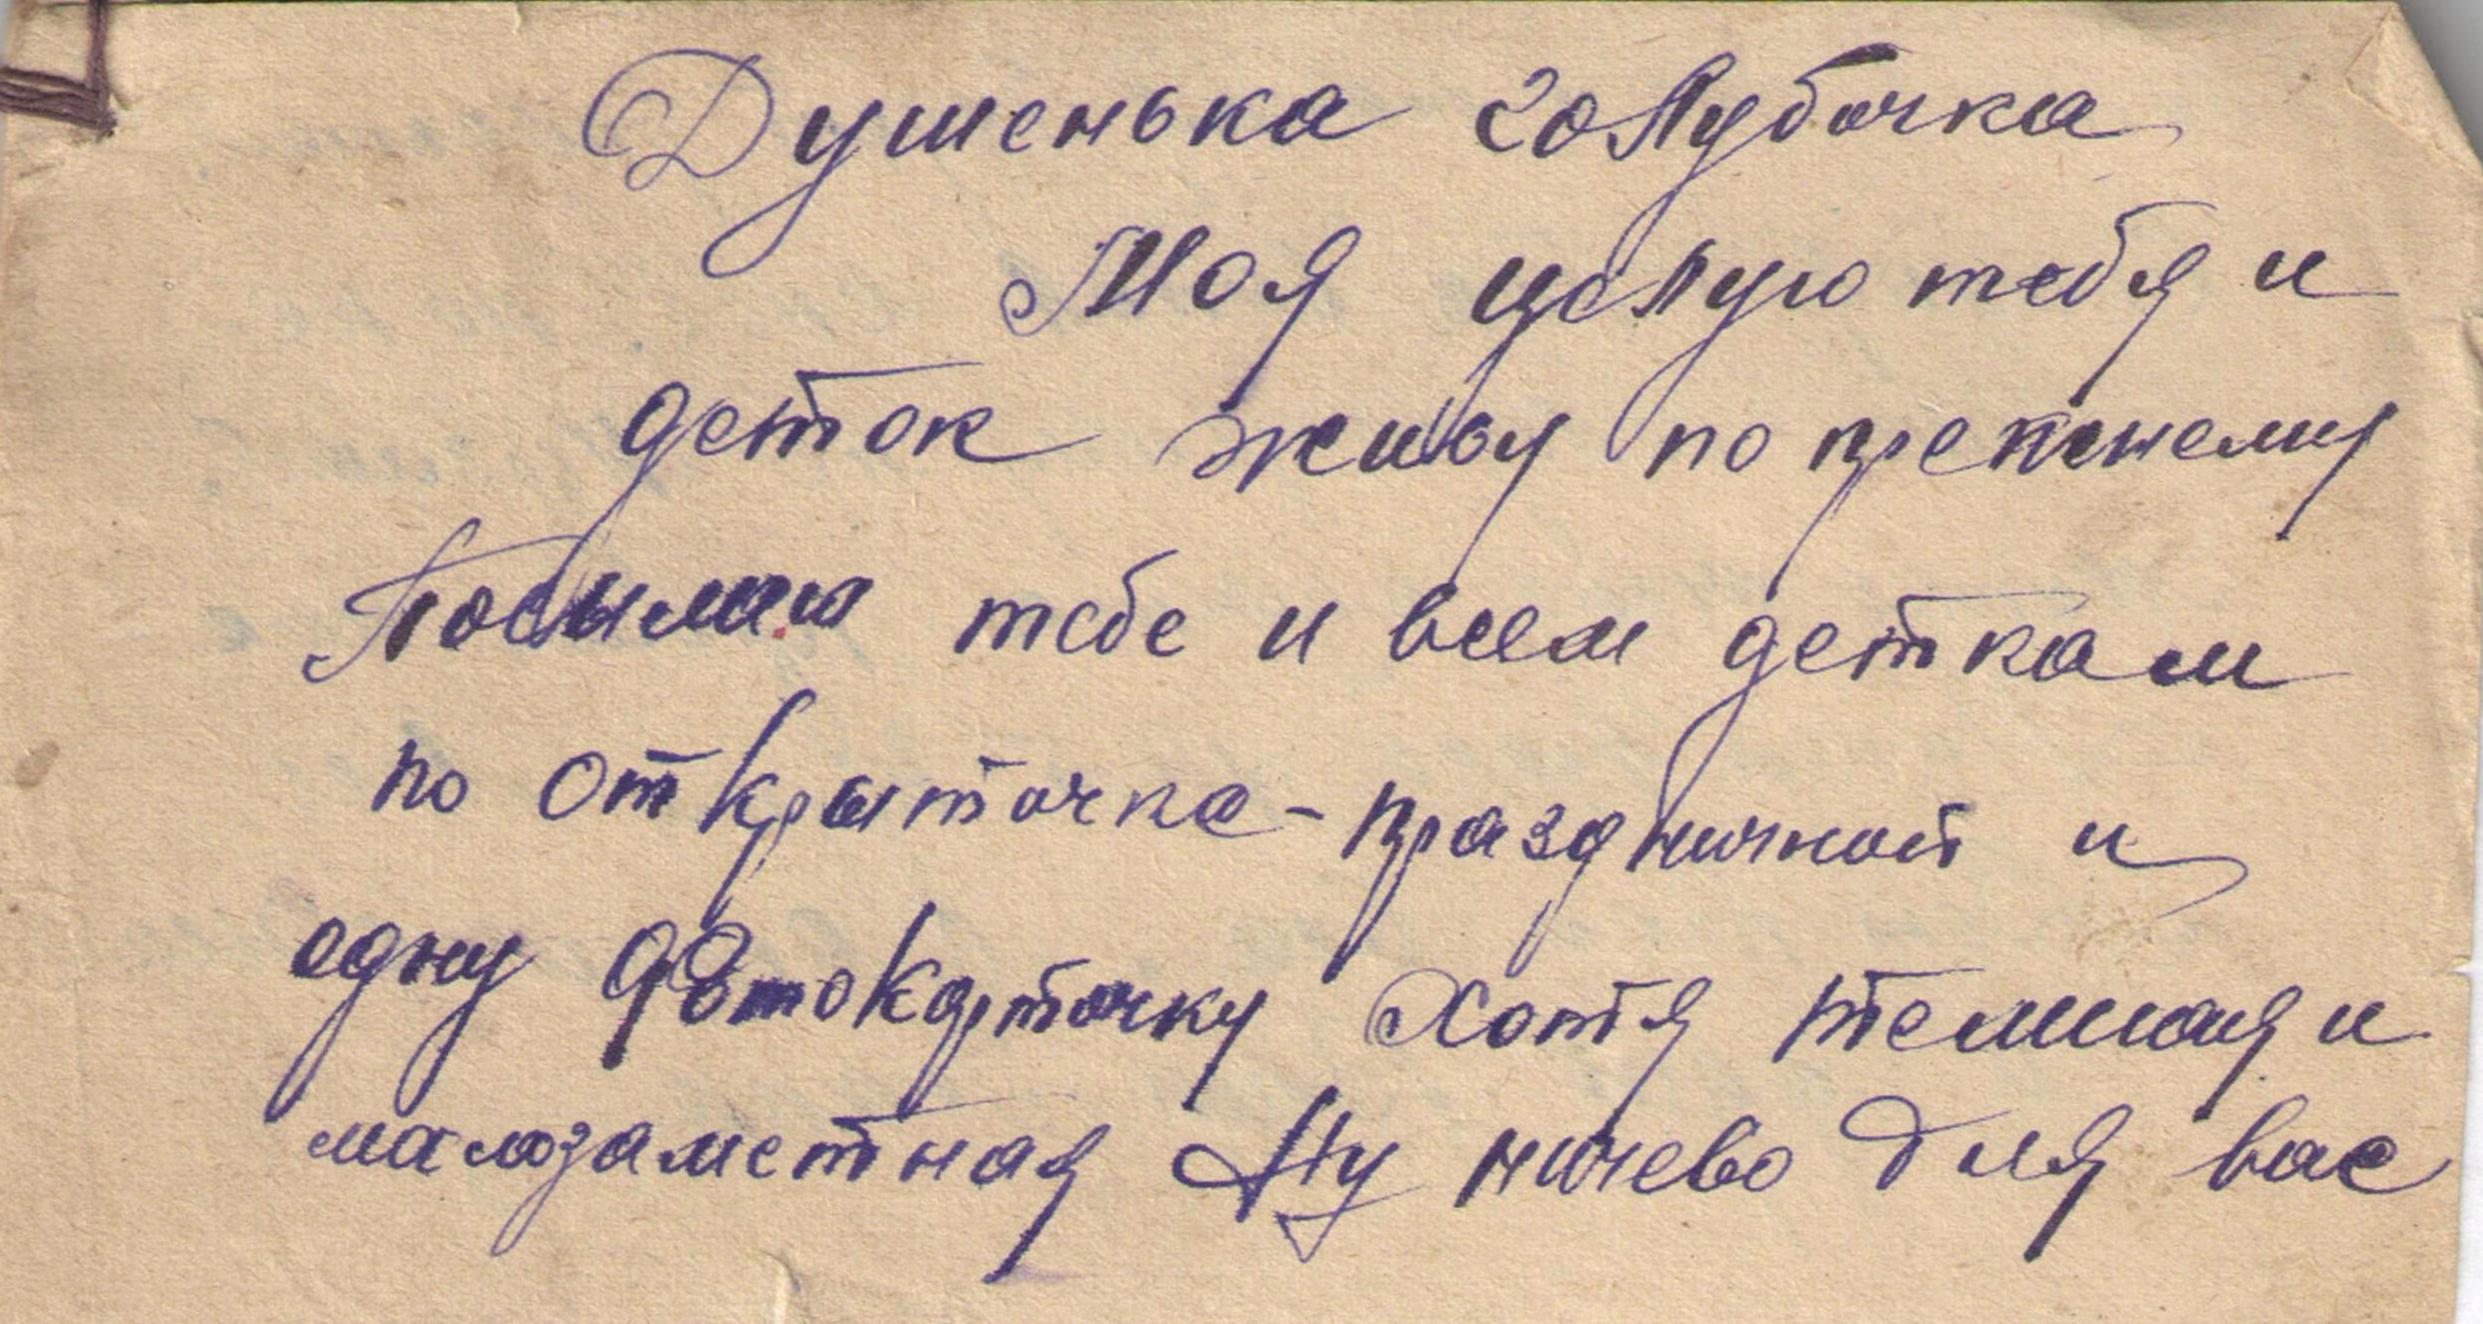 Душенька голубочка
Моя целую тебя и
деток живу по прежнему
Посылаю тебе и всем деткам
по открыточке - праздничной и
одну фотокарточку Хотя темная и
малозаметная Ну ничево для вас